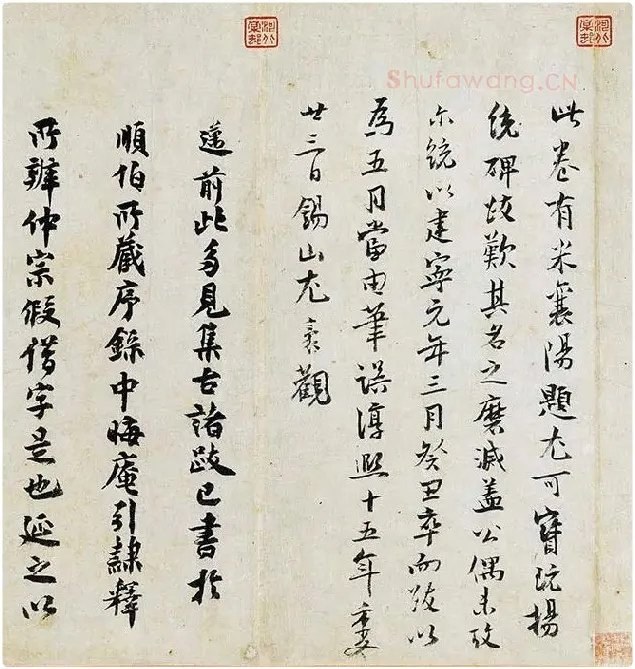 Shufawang.CN
此卷有米襄陽題尤可寶玩揚
統碑跋歎其名之磨滅蓋公偶未攷
尓統以建寧元年三月癸丑卒而跋以
為五月當由筆誤淳熙十五年季夏
廿三日錫山尤袤觀
邁前此多見集古諸跋已書於
順伯所藏序錄中晦菴引隸釋
所辯仲宗假借字是也延之以